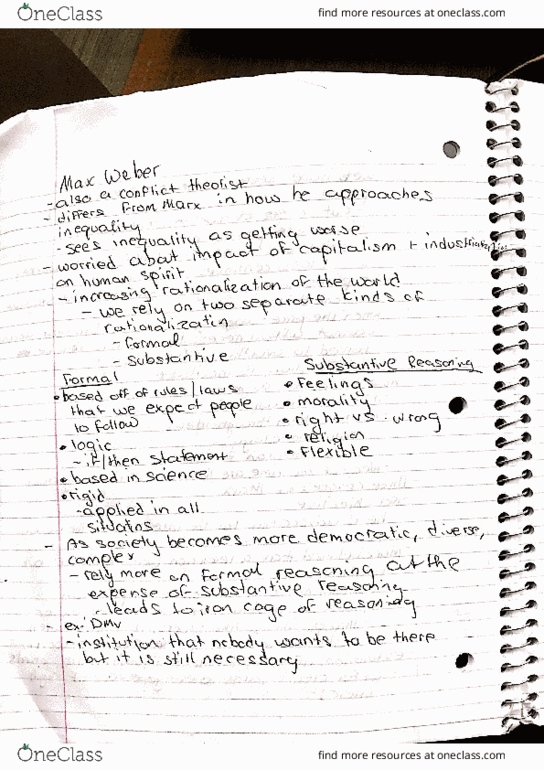 OneClass
find more resources at oneclass.com
Max Weber
- also a conflict theorist
- differs from Marx in how he approaches
inequality
- sees inequality as getting worse
- worried about impact of capitalism +
on human spirit
- increasing rationalization of the world
- we rely on two separate kinds of
rationalizatin
- formal
- substantive
Formal
• based off of rules/laws
that we expect people
to follow
• logic
- if/then statement
• based in science
• rigid
- applied in all
Substantive Reasoning
• feelings
• morality
• right vs. wrong
• religion
• flexible
- As society becomes more democratic, diverse,
complex
- rely more on formal reasoning at the
expense of substantive reasoning
- leads to iron cage of reasoning
- ex: DMV
- institution that nobody wants to be there
but it is still necessary
OneClass
find more resources at oneclass.com